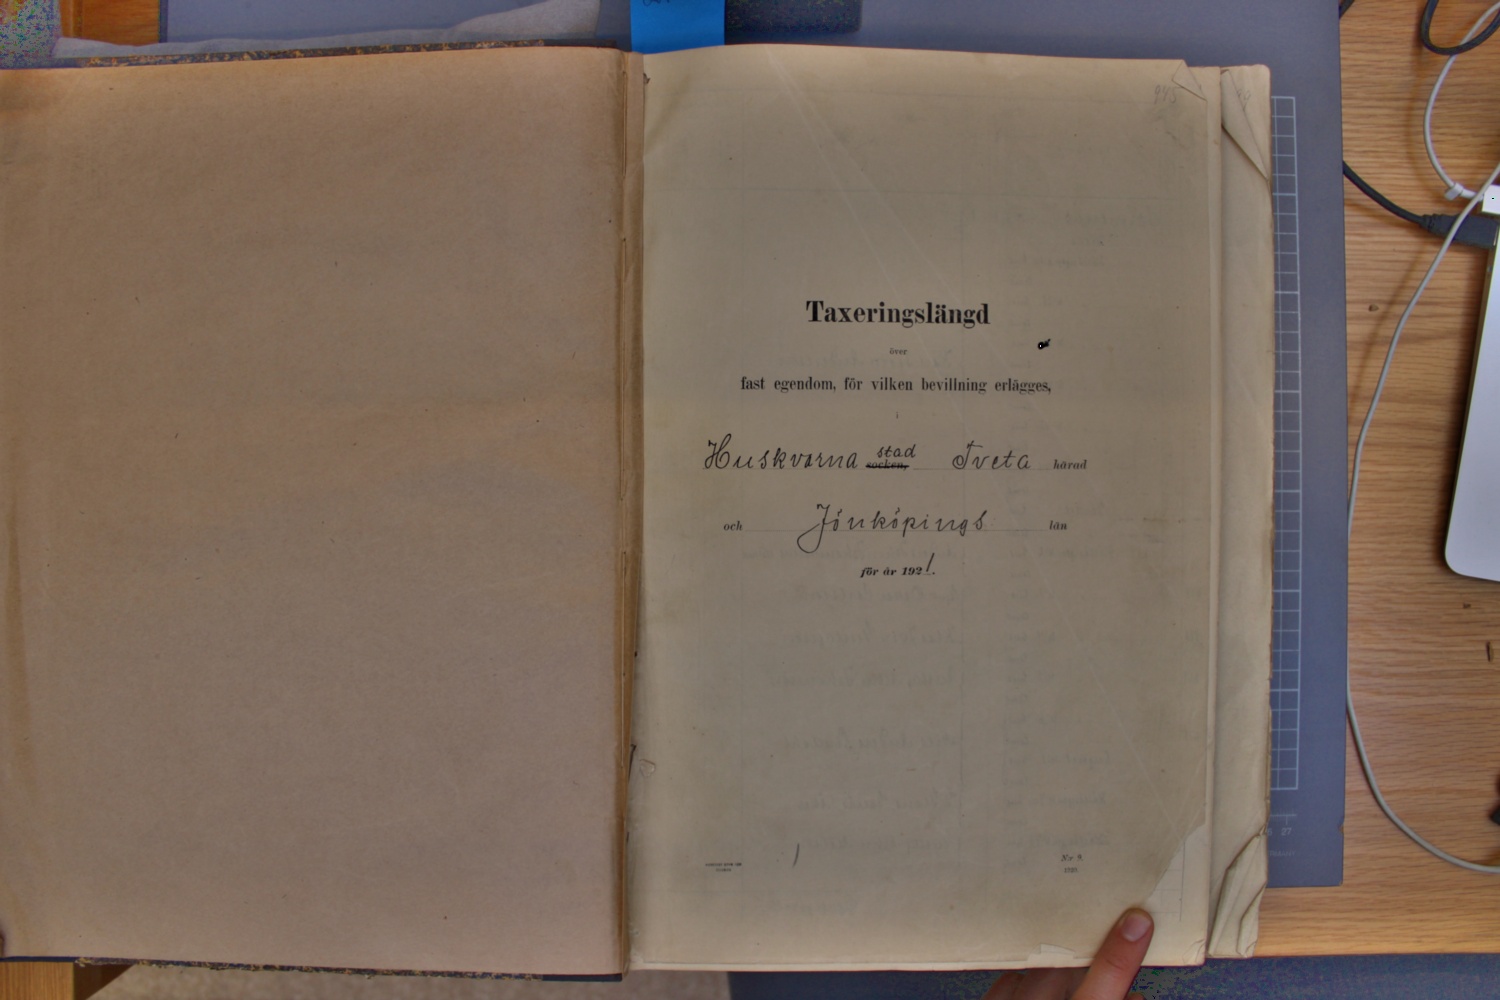 945
Taxeringslängd
över
fast egendom, för vilken bevillning erlägges,
i
Huskvarna stad socken, Tveta härad
och Jönköpings län
för år 1921.
Nr 9.
27